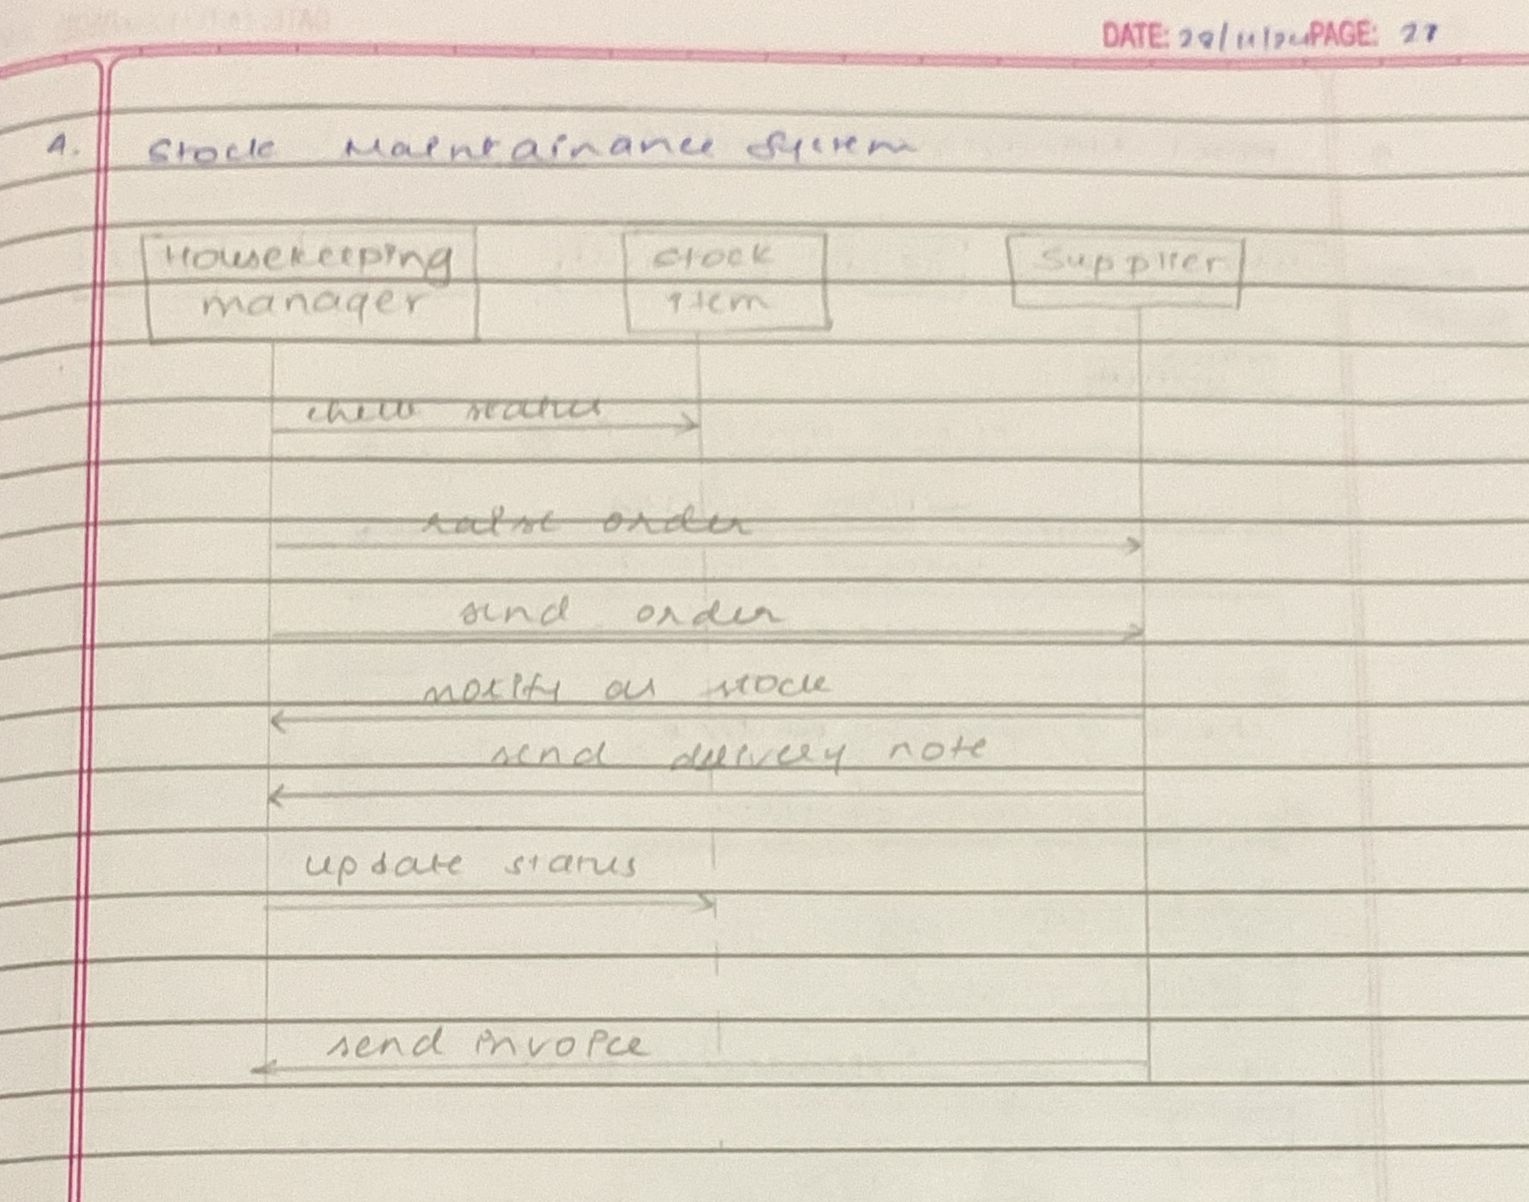 DATE: 28/11/24 PAGE: 27
4. Stock Maintainance System
Housekeeping
manager
Stock
item
Supplier
check status
raise order
send order
notify as stock
send delivery note
update status
send invoice